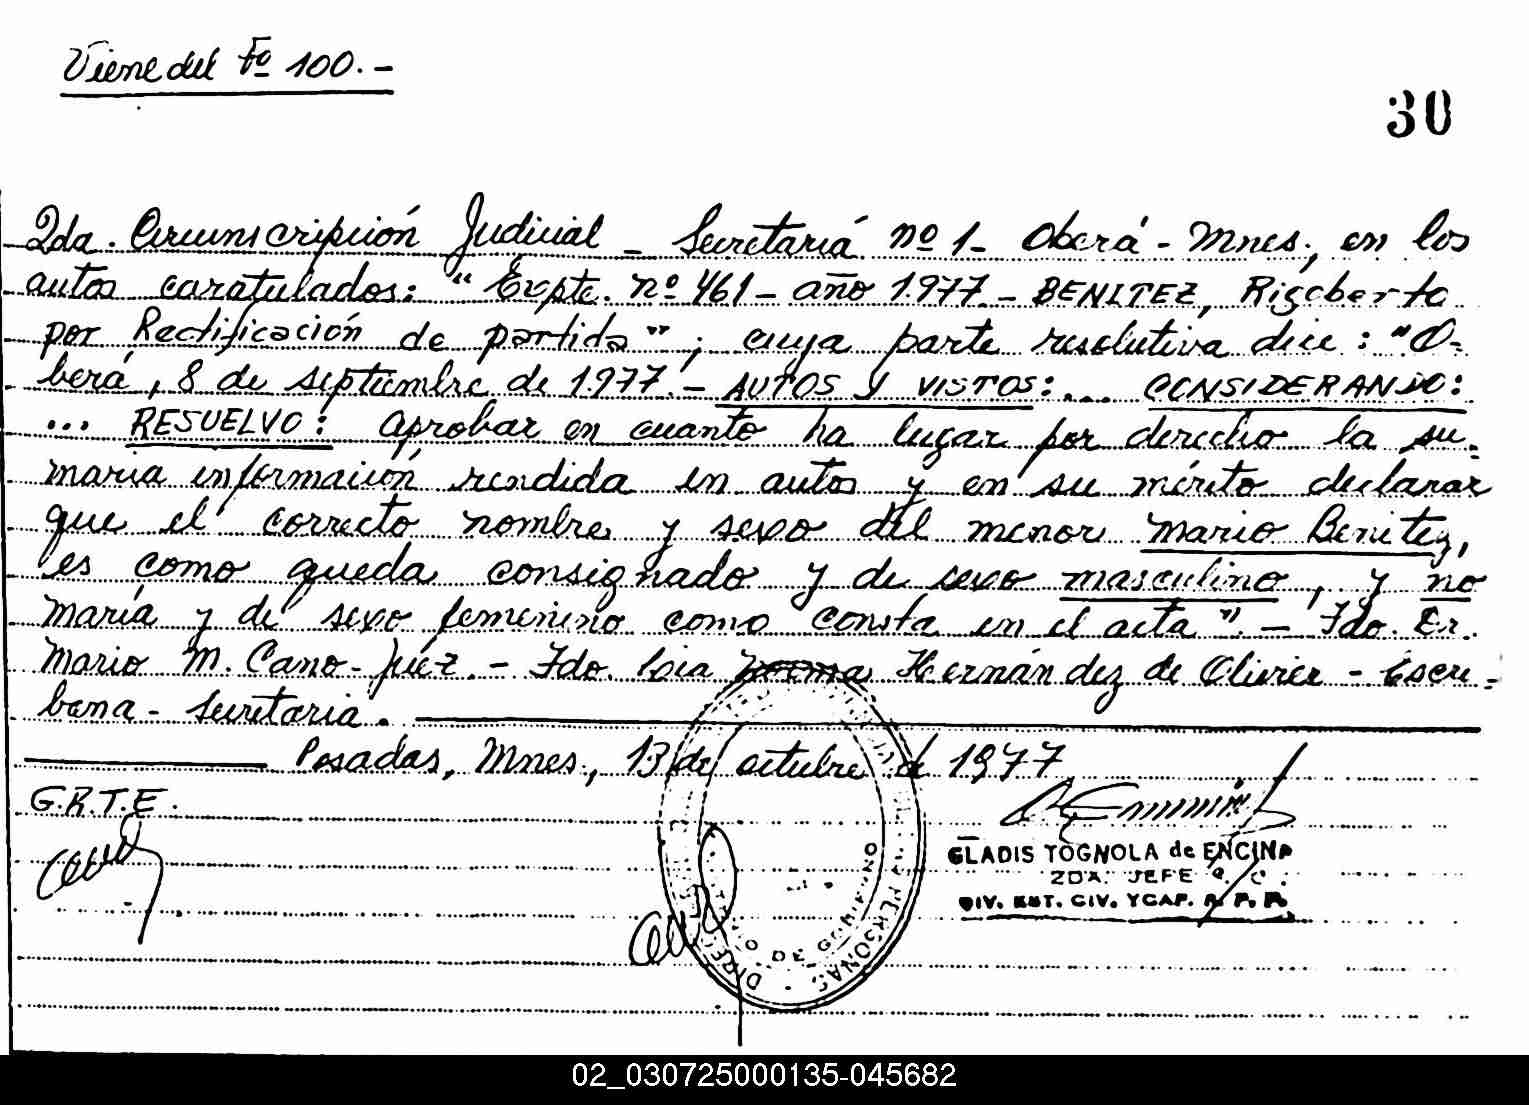 Viene del Fº 100.-
30
2da. Circunscripción Judicial - Secretaría nº 1- Oberá - Mnes., en los
autos caratulados: "Expte. nº 461 - año 1.977.- BENITEZ, Rigoberto
por Rectificación de partida"; cuya parte resolutiva dice: "O-
berá, 8 de septiembre de 1.977.- AUTOS Y VISTOS:... CONSIDERANDO:
... RESUELVO: Aprobar en cuanto ha lugar por derecho la su-
maria información rendida en autos y en su mérito declarar
que el correcto nombre y sexo del menor Mario Benitez,
es como queda consignado y de sexo masculino, y no
María y de sexo femenino como consta en el acta".- Fdo. Dr.
Mario M. Cano - Juez.- Fdo. Lia Norma Hernández de Olivier - Escri-
bana - Secretaria.
Posadas, Mnes., 13 de octubre de 1977
G.R.T.E.
GLADIS TOGNOLA de ENCINA
2DA. JEFE
DIV. EST. CIV. YCAP. R. P. P.
DE GOBIERNO
PERSONAS
02_030725000135-045682